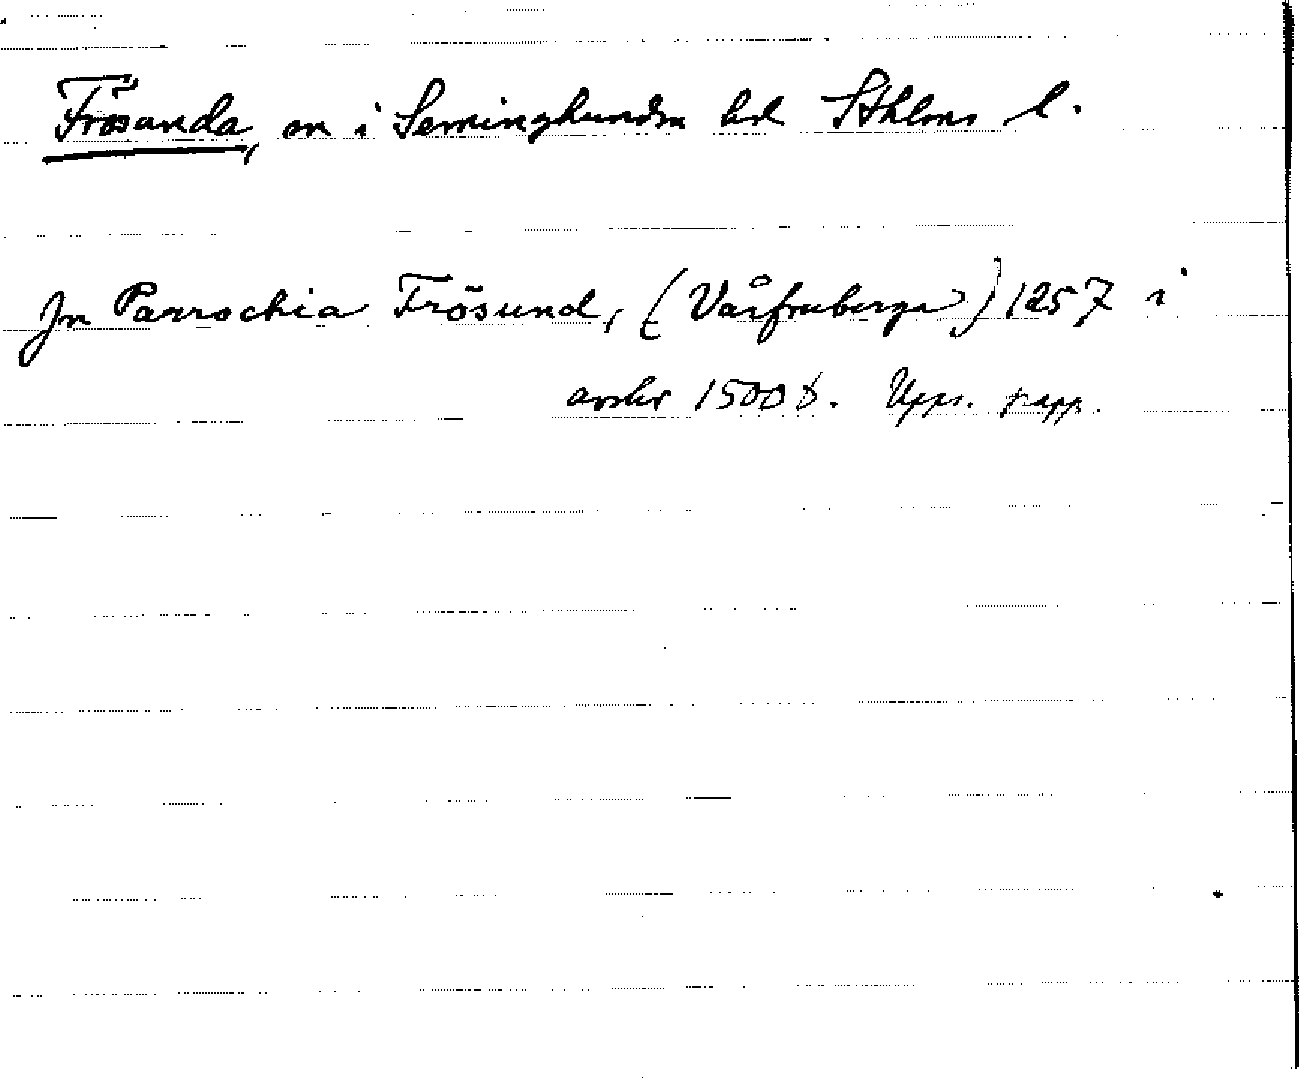 Frösunda, sn i Seminghundra hd Sthlms l.
Jn Parrochia Frösund, (Vårfruberga) 1257 i
avskr 1500 b. Upps. papp.